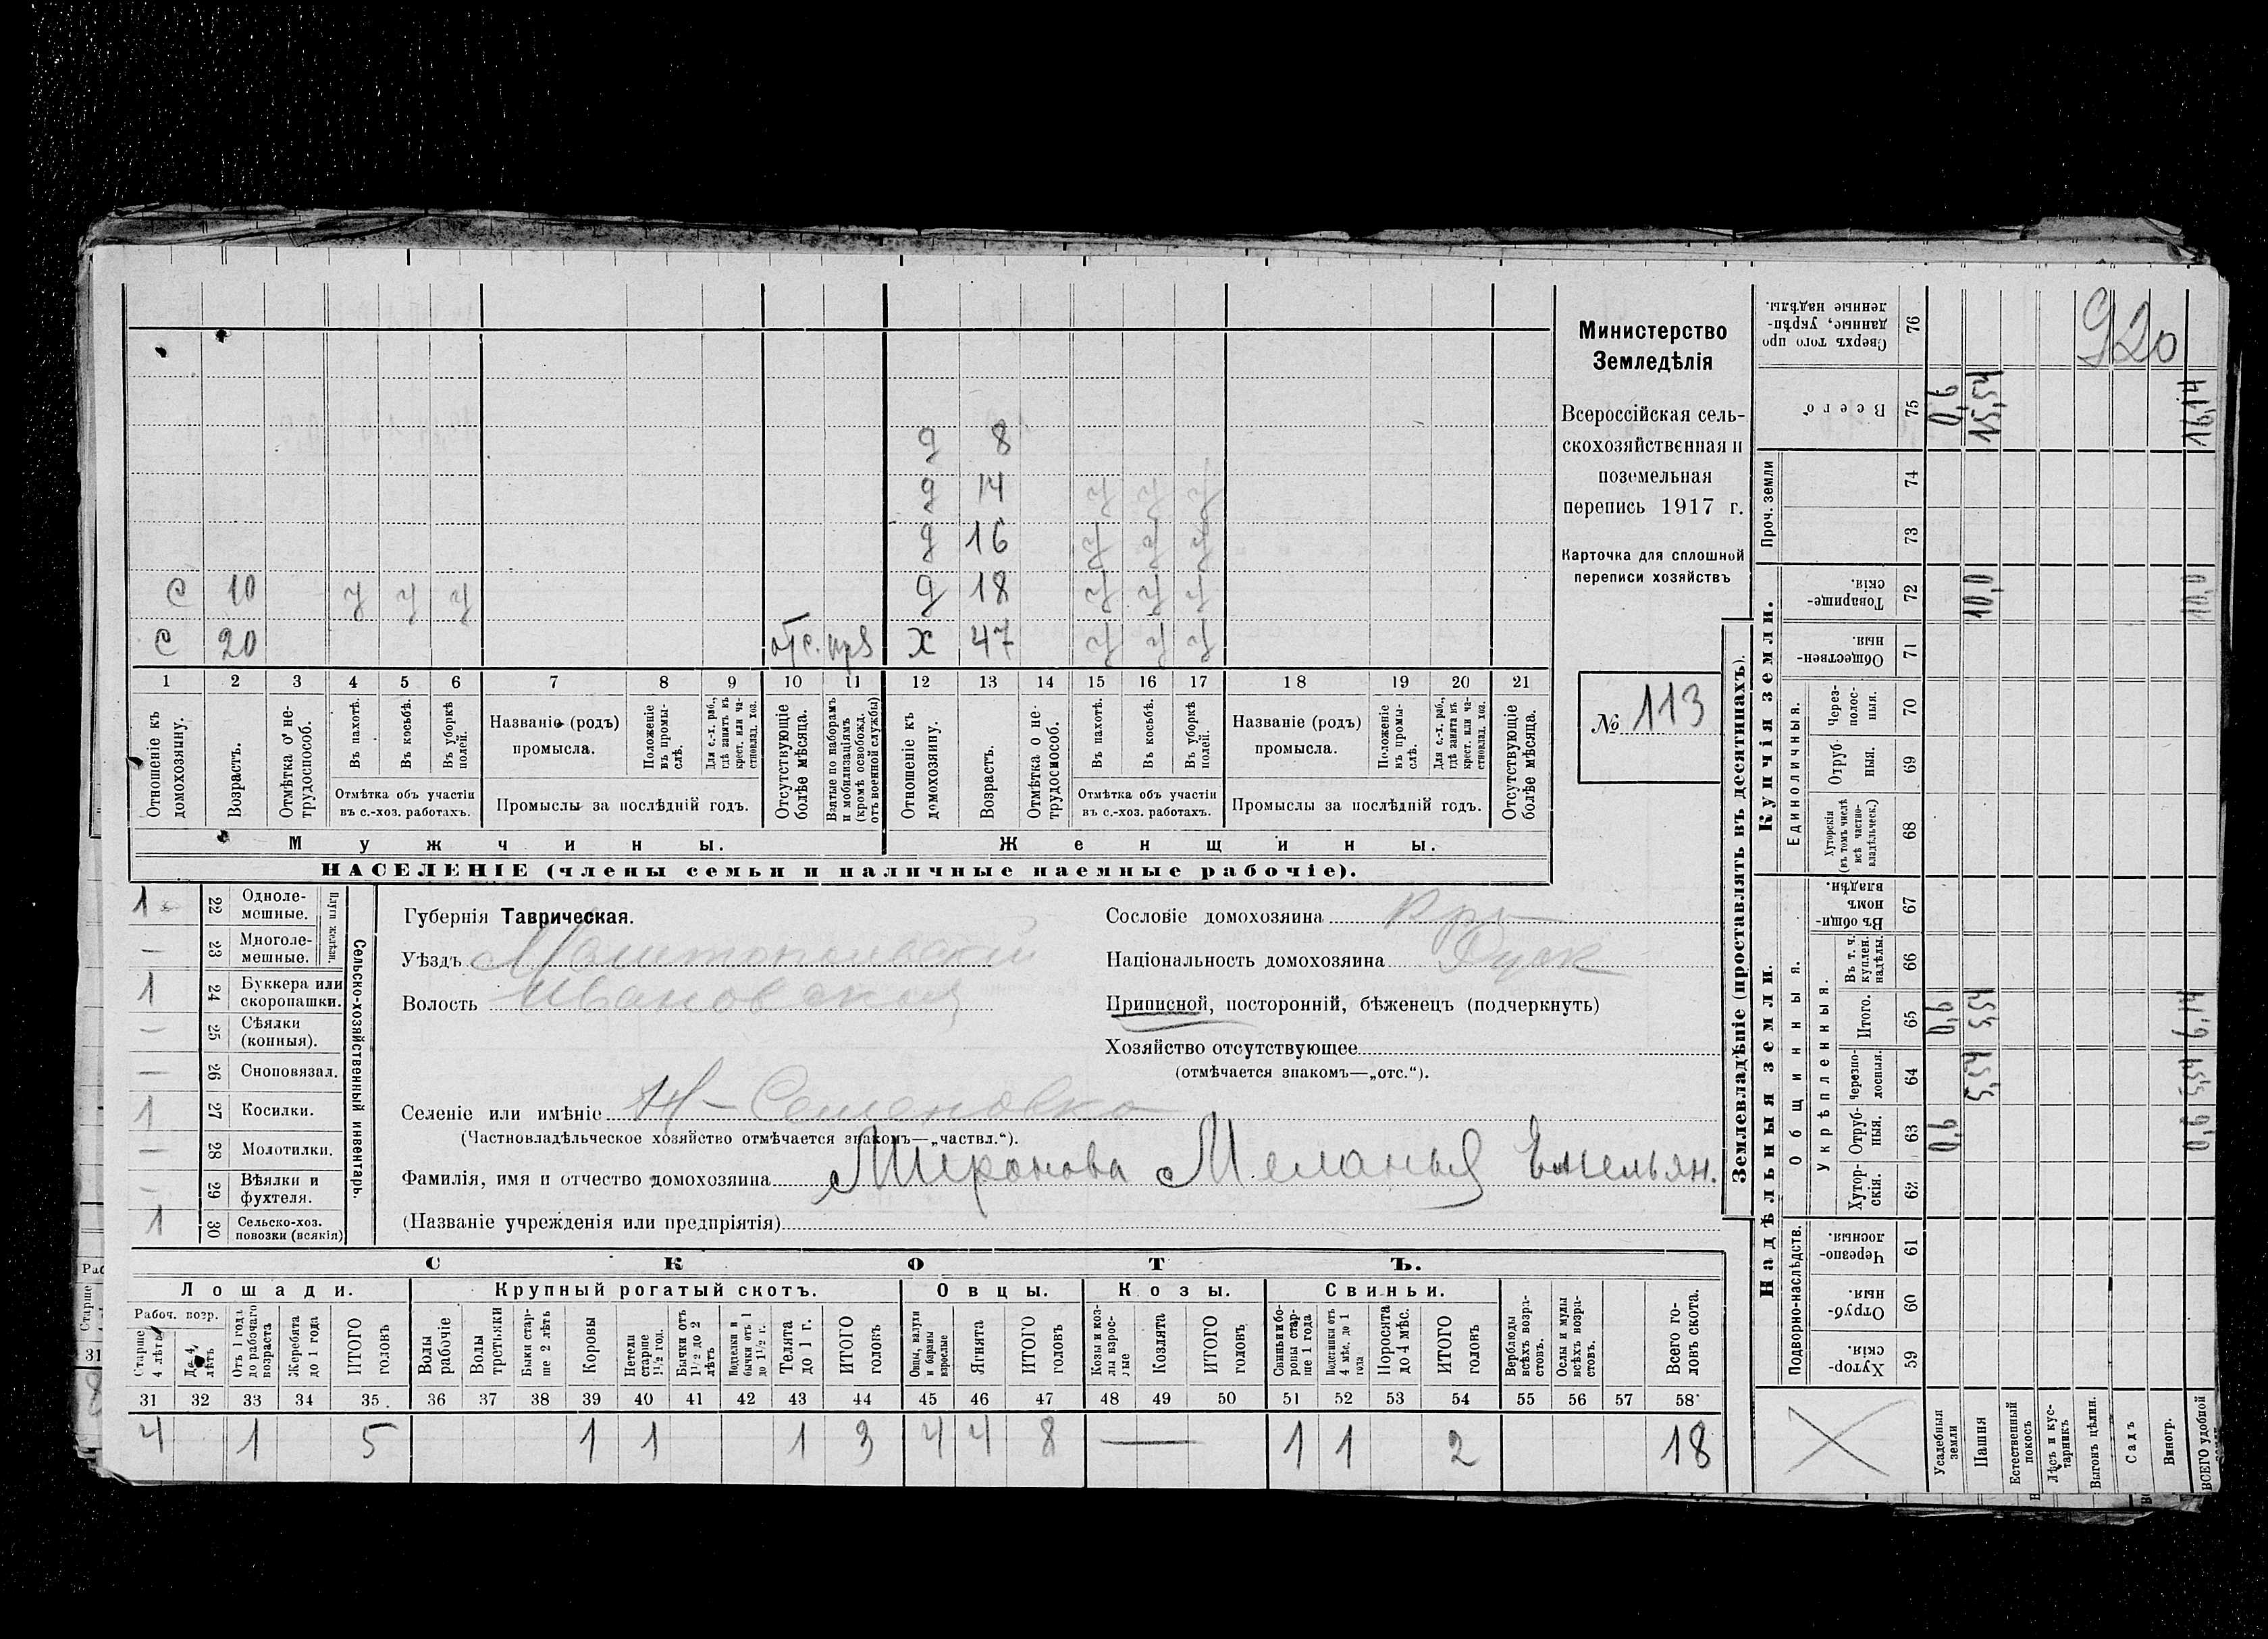 920
Министерство
Земледѣлія
Всероссійская сель-
скохозяйственная и
поземельная
перепись 1917 г.
Карточка для сплошной
переписи хозяйствъ
№ 113
д 8
д 14 у у у
д 16 у у у
с 10 у у у д 18 у у у
с 20 отс. х 47 у у у
1 2 3 4 5 6 7 8 9 10 11 12 13 14 15 16 17 18 19 20 21
Отношеніе къ домохозяину.
Возрастъ.
Отмѣтка о не-трудоспособ.
Въ пахотѣ.
Въ косьбѣ.
Въ уборкѣ полей.
Отмѣтка объ участіи въ с.-хоз. работахъ.
Названіе (родъ) промысла.
Положеніе въ промы-слѣ.
Для с.-х. раб., гдѣ занятъ въ крест. или ча-стновлад. хоз.
Промыслы за послѣдній годъ.
Отсутствующіе болѣе мѣсяца.
Взятые по наборамъ и мобилизаціямъ (кромѣ освобожд. отъ военной службы)
Отношеніе къ домохозяину.
Возрастъ.
Отмѣтка о не-трудоспособ.
Въ пахотѣ.
Въ косьбѣ.
Въ уборкѣ полей.
Отмѣтка объ участіи въ с.-хоз. работахъ.
Названіе (родъ) промысла.
Положеніе въ промы-слѣ.
Для с.-х. раб., гдѣ занята въ крест. или ча-стновлад. хоз.
Промыслы за послѣдній годъ.
Отсутствующіе болѣе мѣсяца.
Мужчины. Женщины.
НАСЕЛЕНІЕ (члены семьи и наличные наемные рабочіе).
Сельско-хозяйственный инвентарь.
Плуги желѣзн.
1 22 Одноле-мешные.
— 23 Многоле-мешные.
1 24 Буккера или скоропашки.
— 25 Сѣялки (конныя).
— 26 Сноповязал.
1 27 Косилки.
— 28 Молотилки.
— 29 Вѣялки и фухтеля.
1 30 Сельско-хоз. повозки (всякія)
Губернія Таврическая.
Уѣздъ Мелитопольскій
Волость Ивановская
Селеніе или имѣніе Н-Семеновка
(Частновладѣльческое хозяйство отмѣчается знакомъ—„частвл.“).
Фамилія, имя и отчество домохозяина Миронова Меланья Емельян.
(Названіе учрежденія или предпріятія)
Сословіе домохозяина
Національность домохозяина Руск
Приписной, посторонній, бѣженецъ (подчеркнуть)
Хозяйство отсутствующее
(отмѣчается знакомъ—„отс.“).
СКОТЪ.
Лошади. Крупный рогатый скотъ. Овцы. Козы. Свиньи.
Рабоч. возр.
Старше 4 лѣтъ
До 4 лѣтъ
Отъ 1 года до рабочаго возраста
Жеребята до 1 года
ИТОГО головъ
Волы рабочіе
Волы третьяки
Быки стар-ше 2 лѣтъ
Коровы
Нетели старше 1½ год.
Бычки отъ 1½ до 2 лѣтъ
Подтелки и бычки отъ 1 до 1½ г.
Телята до 1 г.
ИТОГО головъ
Овцы, валухи и бараны взрослые
Ягнята
ИТОГО головъ
Козы и коз-лы взрос-лые
Козлята
ИТОГО головъ
Свиньи и бо-ровы стар-ше 1 года
Подсвинки отъ 4 мѣс. до 1 года
Поросята до 4 мѣс.
ИТОГО головъ
Верблюды всѣхъ возра-стовъ.
Ослы и мулы всѣхъ возра-стовъ.
Всего го-ловъ скота.
31 32 33 34 35 36 37 38 39 40 41 42 43 44 45 46 47 48 49 50 51 52 53 54 55 56 57 58
4 1 5 1 1 1 3 4 4 8 — 1 1 2 18
Землевладѣніе (проставлять въ десятинахъ).
Надѣльныя земли. Купчія земли.
Подворно-наслѣдств.
Общинныя.
Укрѣпленныя.
Единоличныя.
Проч. земли
Хутор-скія. 59
Отруб-ныя. 60
Черезпо-лосныя. 61
Хутор-скія. 62
Отруб-ныя. 63
Черезпо-лосныя. 64
Итого. 65
Въ т. ч. куплен. надѣлы. 66
Въ общин-номъ владѣн. 67
Хуторскія (въ томъ числѣ всѣ частно-владѣльческ.) 68
Отруб-ныя. 69
Через-полос-ныя. 70
Обществен-ныя. 71
Товарище-скія. 72
73
74
Всего 75
Сверхъ того про-данные, укрѣп-ленные надѣлы. 76
Усадебныя земли 0,6 0,6 0,6
Пашня 5,54 5,54 10,0 15,54
Естественный покосъ
Лѣсъ и кус-тарникъ
Выгонъ цѣлин.
Садъ
Виногр.
ВСЕГО удобной 0,6 5,54 6,14 10,0 16,14